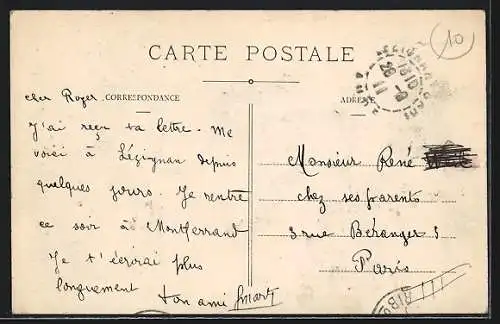 CARTE POSTALE
CORRESPONDANCE
ADRESSE
10
cher Roger
J'ai reçu ta lettre. Me
voici à Lézignan depuis
quelques jours. Je rentre
ce soir à Montferrand
Je t'écrirai plus
longuement
ton ami
Monsieur René
chez ses parents
3 rue Béranger 3
Paris